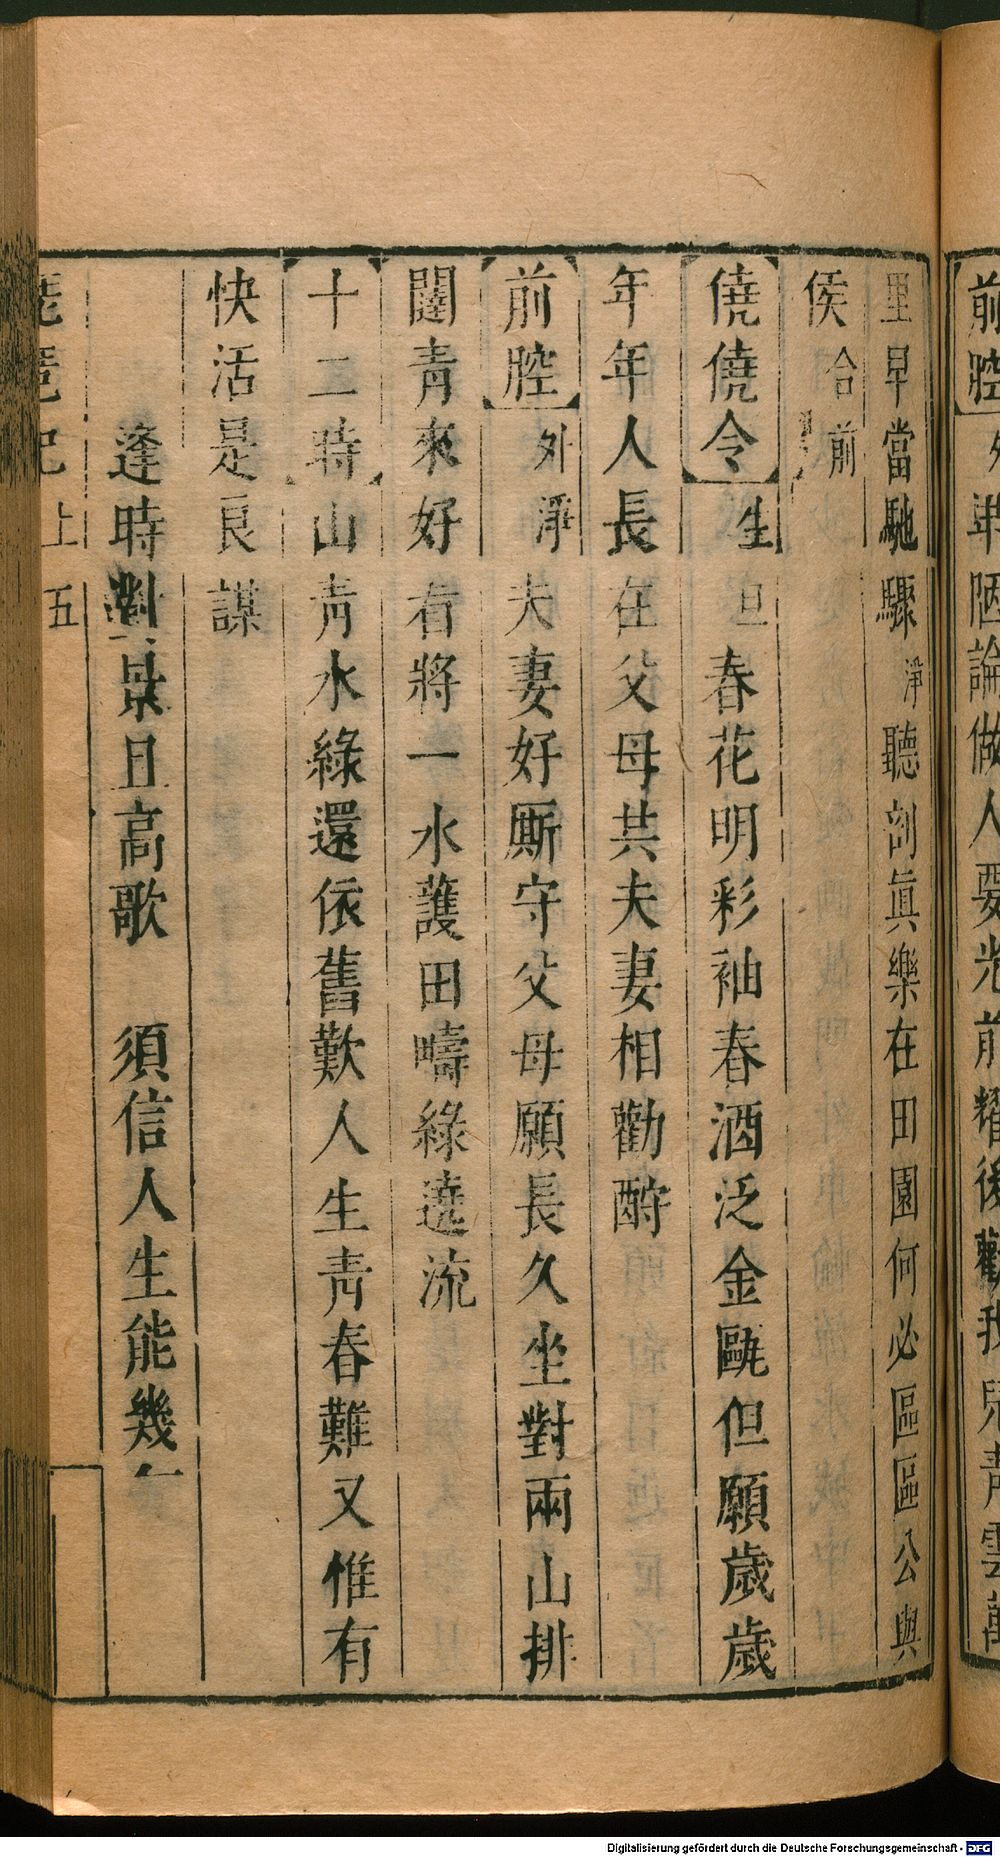 前腔 外 卑陋論做人要光前耀後勸我兒青雲萬
里早當馳驟 淨 聽剖眞樂在田園何必區區公與
侯 合前
僥僥令 生旦 春花明彩袖春酒泛金甌但願歲歲
年年人長在父母共夫妻相勸酧
前腔 外淨 夫妻好厮守父母願長久坐對兩山排
闥青來好看將一水護田疇綠遶流
十二時山青水綠還依舊歎人生青春難又惟有
快活是良謀
逢時對景且高歌 須信人生能幾
琵琶記上 五
Digitalisierung gefördert durch die Deutsche Forschungsgemeinschaft - DFG